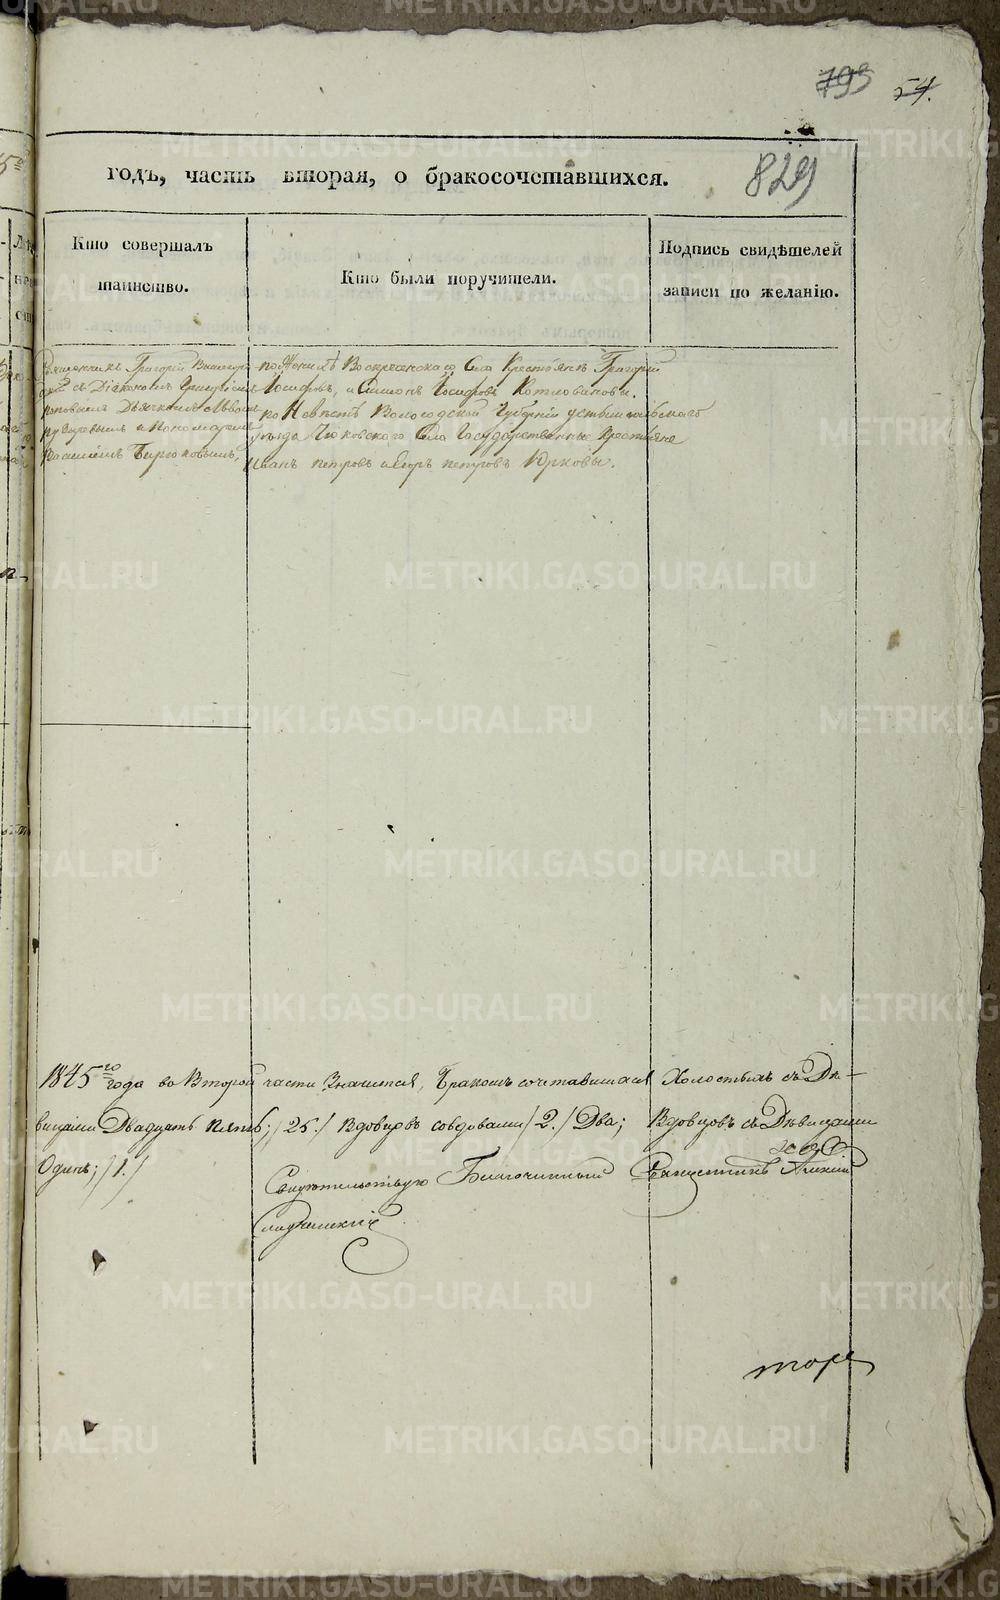 793 54.
829
годъ, часть вторая, о бракосочетавшихся.
Кто совершалъ таинство.
Кто были поручители.
Подпись свидѣтелей записи по желанію.
Священникъ Григорій
съ Діакономъ
Поповымъ Дьячкомъ
и Пономаремъ
Василіемъ Бирюковымъ,
по Женихѣ Воскресенскаго Села Крестьянъ Григорій
Іосифовъ, и Симонъ Іосифовъ Котловановы.
по Невѣстѣ Вологодской Губерніи устьсысольскаго
уѣзда Села Государственные Крестьяне
Иванъ петровъ и Егоръ петровъ Юрковы.
1845го года во Второй части Значится, Бракомъ сочетавшихся Холостыхъ съ Дѣ-
вицами Двадцать пять; /25./ Вдовцовъ совдовами /2./ Два; Вдовцовъ съ Дѣвицами
Одинъ; /1./
Свидѣтельствую Благочинный Священникъ
METRIKI.GASO-URAL.RU